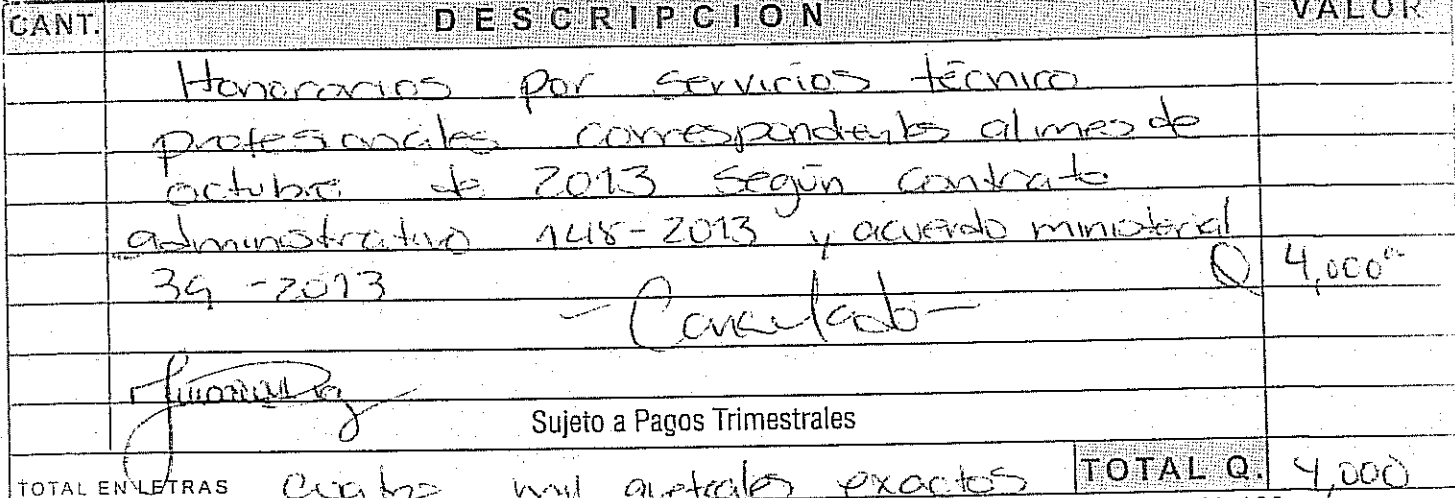 CANT. DESCRIPCION VALOR
Honorarios por servicios técnico
profesionales correspondientes al mes de
octubre de 2013 según contrato
administrativo 148-2013 y acuerdo ministerial
39-2013 Q 4,000.00
- Cancelado -
Sujeto a Pagos Trimestrales
TOTAL EN LETRAS Cuatro mil quetzales exactos TOTAL Q. 4,000